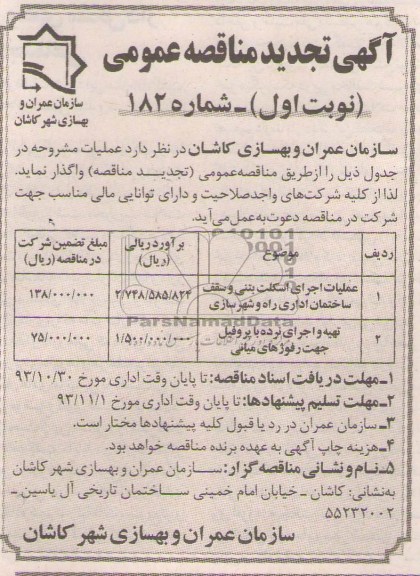 آگهی تجدید مناقصه عمومی
(نوبت اول) ـ شماره ۱۸۲
سازمان عمران و
بهسازی شهر کاشان
سازمان عمران و بهسازی کاشان در نظر دارد عملیات مشروحه در
جدول ذیل را ازطریق مناقصه‌عمومی (تجدیــد مناقصه) واگذار نماید.
لذا از کلیه شرکت‌های واجدصلاحیت و دارای توانایی مالی مناسب جهت
شرکت در مناقصه دعوت‌به‌عمل‌می‌آید.
ردیف موضوع برآوردریالی (ریال) مبلغ تضمین شرکت در مناقصه (ریال)
۱ عملیات اجرای اسکلت بتنی و سقف ساختمان اداری راه و شهرسازی ۲/۷۴۸/۵۸۵/۸۲۴ ۱۳۸/۰۰۰/۰۰۰
۲ تهیه و اجرای نرده با پروفیل جهت رفوژهای میانی ۱/۵۰۰/۰۰۰/۰۰۰ ۷۵/۰۰۰/۰۰۰
ParsNamadData
۱ـ مهلت دریافت اسناد مناقصه: تا پایان وقت اداری مورخ ۹۳/۱۰/۳۰
۲ـ مهلت تسلیم پیشنهادها: تا پایان وقت اداری مورخ ۹۳/۱۱/۱
۳ـ سازمان عمران در رد یا قبول کلیه پیشنهادها مختار است.
۴ـ هزینه چاپ آگهی به عهده برنده مناقصه خواهد بود.
۵ـ نام و نشانی مناقصه‌گزار: ســازمان عمران و بهسازی شهر کاشان
به‌نشانی: کاشان ـ خیابان امام خمینی ســاختمان تاریخی آل یاسین ـ
۵۵۲۳۲۰۰۲
سازمان عمران و بهسازی شهر کاشان